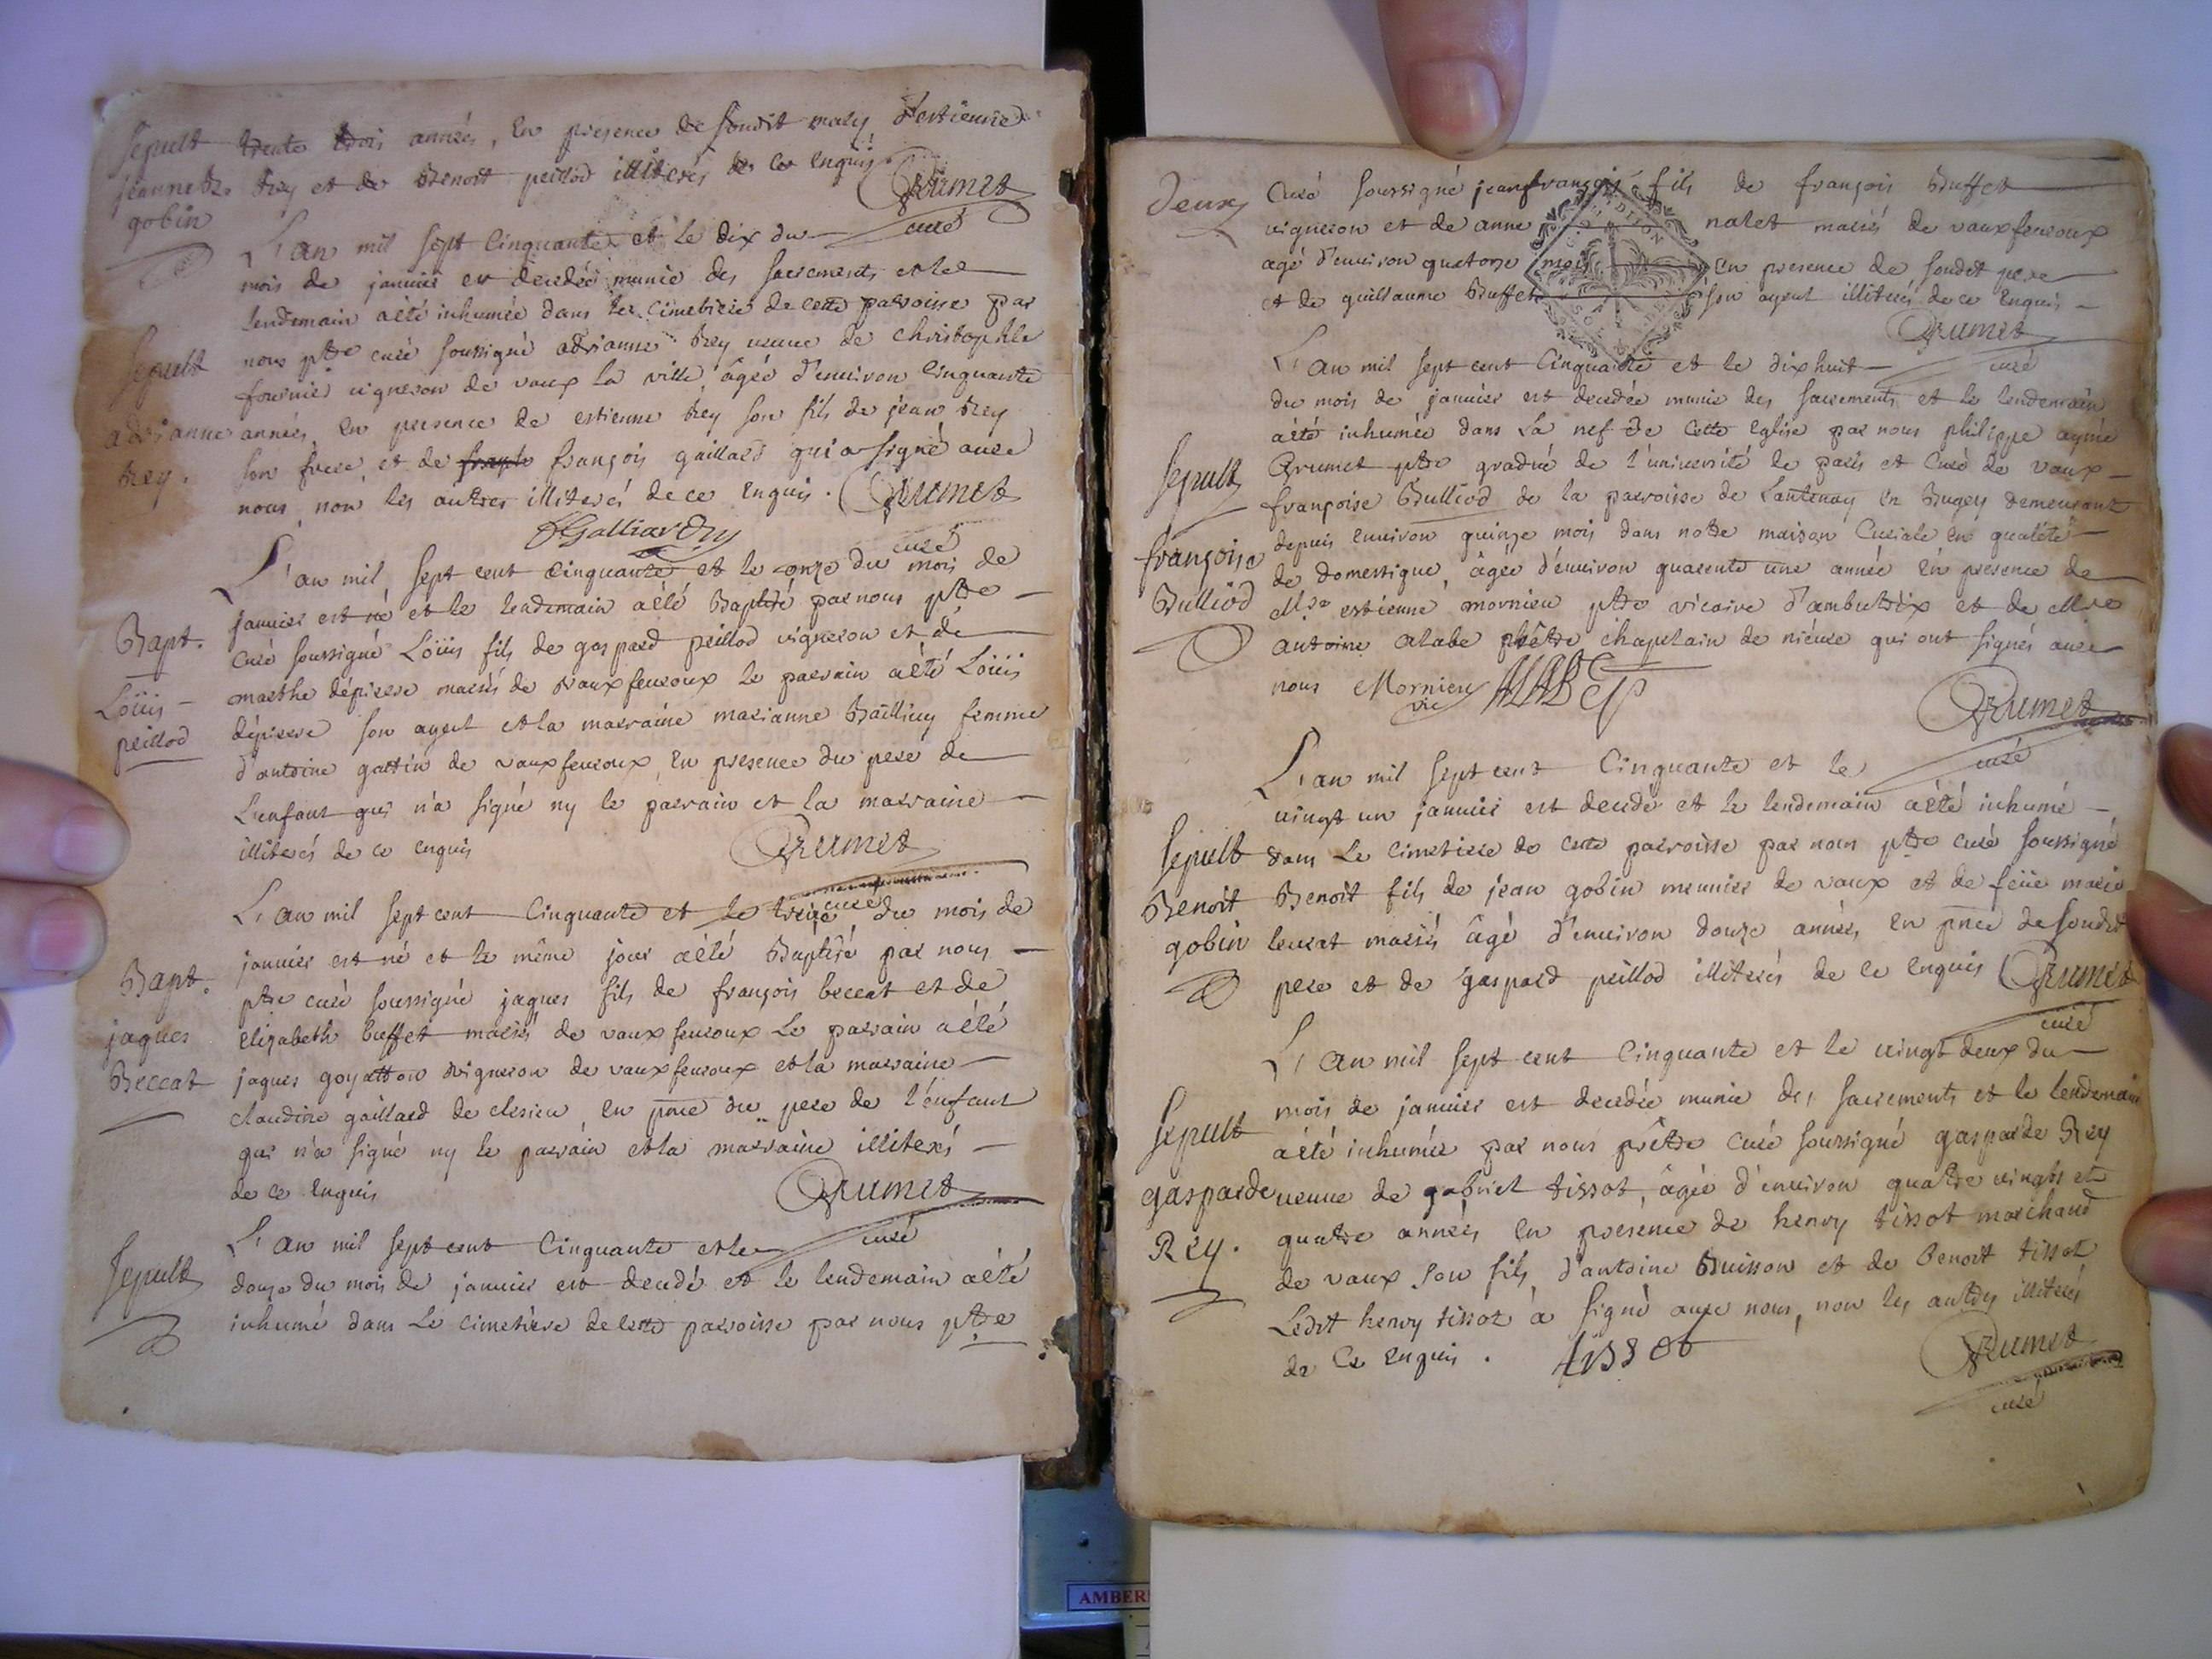 Sepult
jeanne
gobin
trente trois années, En presence de soudit mary d'estienne
Rey et de Benoit peillod illiterés de ce Enquis. Brumet
curé
L'an mil sept Cinquante et le dix du
mois de janvier est decedée munie des sacrements et le
lendemain a été inhumée dans le Cimetiere de cette parroisse par
Sepult
adrianne
Rey.
nous ptre curé soussigné adrianne Rey veuve de Christophle
fournier vigneron de vaux la ville, âgée d'environ Cinquante
années, En presence de estienne Rey son fils de jean Rey
son frere et de françois gaillard qui a signé avec
nous, non les autres illiterés de ce Enquis. Brumet
curé
L'an mil sept cent cinquante et le onze du mois de
janvier est né et le lendemain a été Baptisé par nous ptre
Bapt.
Loüis
peillod
Curé soussigné Loüis fils de gaspard peillod vigneron et de
marthe dépierre mariés de vauxfevroux le parrain a été Loüis
dépierre son ayeul et la marraine marianne femme
d'antoine gottin de vauxfevroux, En presence du pere de
L'enfant qui n'a signé ny le parrain et la marraine
illiterés de ce Enquis Brumet
curé
L'an mil sept cent Cinquante et le treize du mois de
janvier est né et le même jour a été Baptisé par nous
Bapt.
jaques
Beccat
ptre curé soussigné jaques fils de françois beccat et de
Elizabeth buffet mariés de vauxfevroux Le parrain a été
jaques goyatton vigneron de vauxfevroux et la marraine
claudine gaillard de clesieu, En pnce du pere de l'enfant
qui n'a signé ny le parrain et la marraine illiterés
de ce Enquis Brumet
curé
Sepult
L'an mil sept cent Cinquante et le
douze du mois de janvier est decedé et le lendemain a été
inhumé dans Le cimetiere de cette parroisse par nous ptre
deux
Curé soussigné jeanfrançois fils de françois Buffet
vigneron et de anne nalet mariés de vauxfevroux
âgé d'environ quatorze mois En presence de soudit pere
et de guillaume Buffet son ayeul illiterés de ce Enquis
Brumet
curé
L'an mil sept cent Cinquante et le dixhuit
du mois de janvier est decedée munie des sacrements et le lendemain
a été inhumée dans La nef de Cette Eglise par nous philippe aymé
Sepult
françoise
Bulliod
Brumet ptre gradué de l'université de paris et Curé de vaux
françoise Bulliod de la parroisse de Lantenay En Bugey demeurant
depuis environ quinze mois dans notre maison Curiale En qualité
de domestique, âgée d'environ quarente une année En presence de
Mre estienne mornieu ptre vicaire d'ambutrix et de Mre
antoine alabe prêtre chapelain de niéure qui ont signés avec
nous Mornieu
vic
ALABE
Brumet
curé
L'an mil sept cent Cinquante et le
vingt un janvier est decedé et le lendemain a été inhumé
Sepult
Benoit
gobin
dans Le cimetiere de cette parroisse par nous ptre curé soussigné
Benoit fils de jean gobin meunier de vaux et de feüe marie
leurat mariés âgé d'environ douze années, En pnce de soudit
pere et de gaspard peillod illiterés de ce Enquis Brumet
curé
L'an mil sept cent Cinquante et le vingt deux du
mois de janvier est decedée munie des sacrements et le lendemain
Sepult
gasparde
Rey.
a été inhumée par nous prêtre Curé soussigné gasparde Rey
veuve de gabriel tissot, âgée d'environ quatre vingts et
quatre années En presence de henry tissot marchand
de vaux son fils, d'antoine Buisson et de Benoit tissot
Ledit henry tissot a signé avec nous, non les autres illiterés
de Ce Enquis. tissot Brumet
curé
AMBER